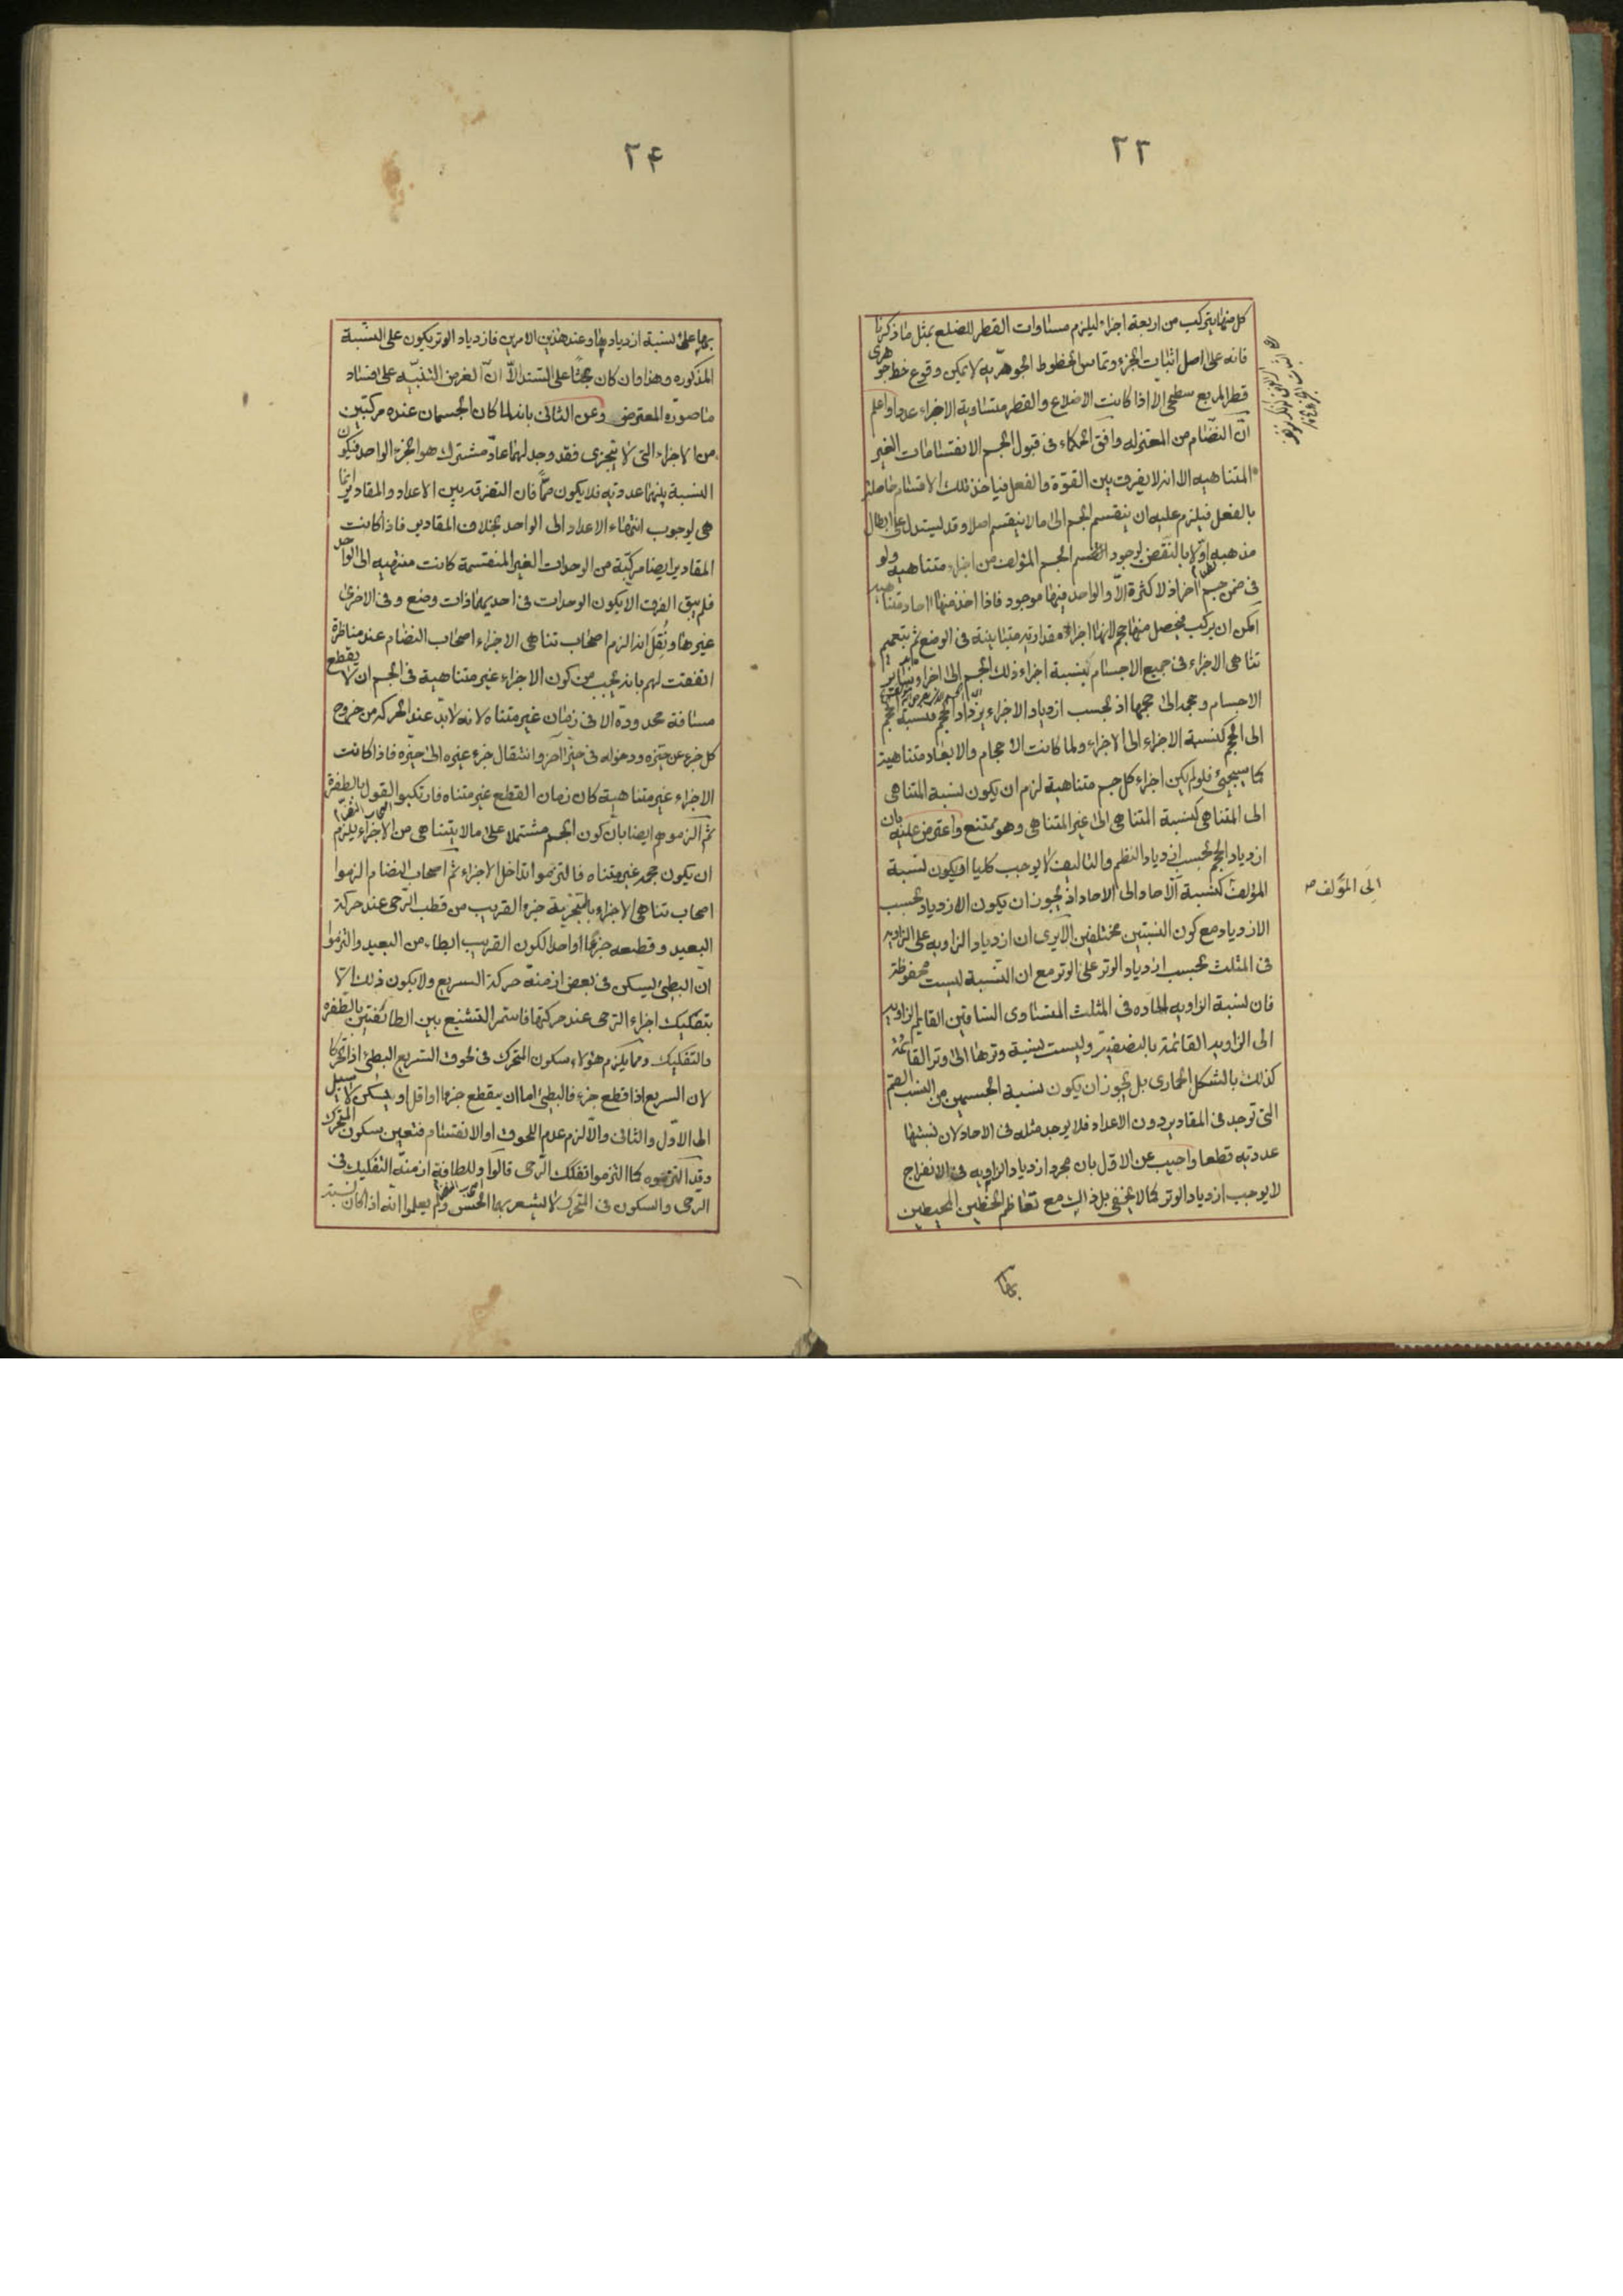 ٢٣
كل منها يتركب من اربعة اجزاء ليلزم مساوات القطر للضلع بمثل ما ذكرنا
فانه على اصل اثبات الجزء وتماس الخطوط الجوهريه لا يمكن وقوع خط جوهرى
قطر المربع سطحى الا اذا كانت الاضلاع والقطر متساوية الاجزاء عددا واعلم
انّ النظّام من المعتزله وافق الحكماء فى قبول الجسم الانقسامات الغير
المتناهيه الا انه لا يفرق بين القوّة والفعل فياخذ تلك الاقسام حاصلة
بالفعل فيلزم عليه ان ينقسم الجسم الى ما لا ينقسم اصلا وقد يستدل على ابطال
مذهبه اوّلا بالنقض بوجود الجسم المؤلف من اجزاء متناهيه ولو
فى ضمن جسم آخر اذ لا كثرة الّا والواحد فيها موجود فاذا اخذ منها احاد متناهيه
امكن ان يركب فيحصل منها حجم لانها اجزاء مقداريه متباينة فى الوضع ثم بتعميم
تناهى الاجزاء فى جميع الاجسام بنسبة اجزاء ذلك الجسم الى اجزاء سائر
الاجسام وحجمه الى حجمها اذ بحسب ازدياد الاجزاء يزداد الحجم فنسبة الحجم
الى الحجم كنسبة الاجزاء الى الاجزاء ولما كانت الاحجام والابعاد متناهية
كما سيجئ فلو لم يكن اجزاء كل جسم متناهية لزم ان يكون نسبة المتناهى
الى المتناهى كنسبة المتناهى الى غير المتناهى وهو ممتنع واعترض عليه بان
ازدياد الحجم بحسب ازدياد النظم والتاليف لا يوجب كليا ان يكون نسبة
المؤلف كنسبة الآحاد الى الاحاد اذ يجوز ان يكون الازدياد بحسب
الى المؤلف صح
الازدياد مع كون النسبتين مختلفين الا يرى ان ازدياد الزاويه على الزاويه
فى المثلث بحسب ازدياد الوتر على الوتر مع ان النسبة ليست محفوظة
فان نسبة الزاويه الحاده فى المثلث المتساوى الساقين القايم الزاويه
الى الزاوية القائمة بالنصفية وليست نسبة وترها الى وتر القائمة
كذلك بالشكل الحمارى بل يجوز ان يكون نسبة الجسمين من النسب الصم
التى توجد فى المقادير دون الاعداد فلا يوجد مثله فى الاحاد لان نسبتها
عددية قطعا واجيب عن الاول بان مجرد ازدياد الزاويه فى الانفراج
لا يوجب ازدياد الوتر كما لا يخفى بل ذلك مع تعاظم الخطين المحيطين
بها
٢۴
بها على نسبة ازديادها وعند هذين الامرين فازدياد الوتر يكون على النسبة
المذكوره وهذا وان كان بحثا على السند الّا انّ الغرض التنبيه على افساد
ما صوره المعترض وعن الثانى بانه لما كان الجسمان عنده مركبين
من الاجزاء التى لا يتجزى فقد وجد لهما عادّ مشترك هو الجزء الواحد فيكون
النسبة بينهما عددية فلا يكون صمّا فان التفرقه بين الاعداد والمقادير انما
هى لوجوب انتهاء الاعداد الى الواحد بخلاف المقادير فاذا كانت
المقادير ايضا مركبة من الوحدات الغير المنقسمة كانت منتهيه الى الواحد
فلم يبق الفرق الا بكون الوحدات فى احديهما ذات وضع وفى الاخرى
غيرها ونُقل انه الزم اصحاب تناهى الاجزاء اصحاب النظام عند مناظرة
اتفقت لهم بانه يجب من كون الاجزاء غير متناهية فى الجسم ان لا يقطع
مسافة محدودة الا فى زمان غير متناه لانه لا بدّ عند الحركة من خروج
كل جزء عن حيّزه ودخوله فى حيّز آخر وانتقال جزء غيره الى حيّزه فاذا كانت
الاجزاء غير متناهية كان زمان القطع غير متناه فارتكبوا القول بالطفرة
ثم الزموهم ايضا بان كون الجسم مشتملا على ما لا يتناهى من الاجزاء يلزم
ان يكون حجمه غير متناه فالتزموا تداخل الاجزاء ثم اصحاب النظام الزموا
اصحاب تناهى الاجزاء بالتجزية جزء القريب من قطب الرّحى عند حركة
البعيد وقطعه جزءًا واحدا لكون القريب ابطاء من البعيد والتزموا
ان البطئ يسكن فى بعض ازمنة حركة السريع ولا يكون ذلك الا
بتفكيك اجزاء الرحى عند حركتها فاستمر التشنيع بين الطائفتين بالطفره
والتفكيك ومما يلزم هؤلاء سكون المتحرك فى لحوق السريع البطئ اذا تحركا
لان السريع اذا قطع جزء فالبطئ اما ان يقطع جزءا او اقل او يسكن لا سبيل
الى الاوّل والثانى والّا لزم عدم اللحوق او الانقسام فتعين سكون المتحرك
وقد التزموه كما التزموا تفكك الرّحى قالوا وللطافة ازمنة التفكيك فى
الرحى والسكون فى المتحرك لا يشعر بها الحس ولم يعلموا انه اذا كان نسبة